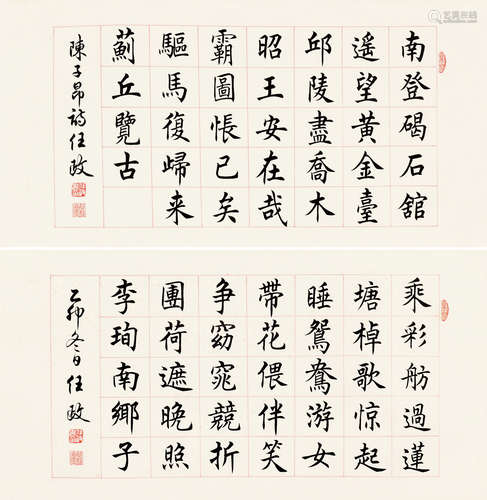 南登碣石館
遥望黄金臺
邱陵盡喬木
昭王安在哉
霸圖悵已矣
驅馬復歸来
薊丘覽古
陳子昂詩任政
乘彩舫過蓮
塘棹歌惊起
睡鴛鴦游女
帶花偎伴笑
争窈窕競折
團荷遮晚照
李珣南鄉子
乙卯冬日任政